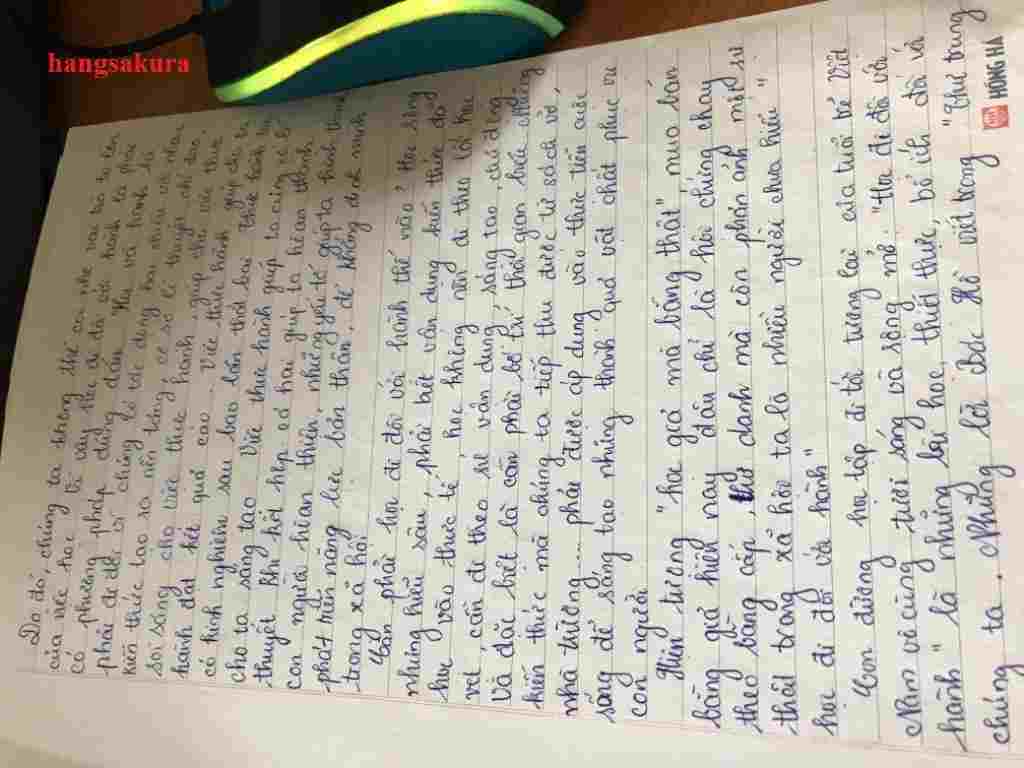 hangsakura
Do đó, chúng ta không thể coi nhẹ vai trò to lớn
của việc học. Vì vậy, học đi đôi với hành là
có phương pháp đúng đắn. Học và hành là
phải đề ra chúng có tác dụng hai chiều với nhau.
kiến thức tạo ra nền tảng, cơ sở lí thuyết, chỉ đạo,
soi sáng cho việc thực hành, giúp cho việc thực
hành đạt kết quả cao. Việc thực hành giúp cho ta
có kinh nghiệm sau bao lần thất bại. Việc thực hành
cho ta sáng tạo. Việc thực hành giúp ta củng cố lí
thuyết. Khi kết hợp cả hai giúp ta hoàn thành
con người hoàn thiện, những yếu tố giúp ta hình thành
phát triển năng lực bản thân, để khẳng định mình
trong xã hội
Cần phải học đi đôi với hành thế nào? Học sâu
nhưng hiểu sâu, phải biết vận dụng kiến thức đã
học vào thực tế, học không nên đi theo lối học
vẹt, cần đi theo sự vận dụng, sáng tạo, chủ động
Và đặc biệt là cần phải bố trí thời gian biểu. Những
kiến thức mà chúng ta tiếp thu được từ sách vở,
nhà trường.... phải được áp dụng vào thực tiễn cuộc
sống để sáng tạo những thành quả vật chất phục vụ
con người
Hiện tượng "học giả mà bằng thật", mua bán
bằng giả hiện nay đâu chỉ là hồi chúng chạy
theo bằng cấp, thứ danh mà còn phản ánh một sự
thật trong xã hội ta là nhiều người chưa hiểu "
học đi đôi với hành"
Con đường học tập đi tới tương lai của tuổi trẻ Việt
Nam vô cùng tươi sáng và rộng mở. "Học đi đôi với
hành" là những bài học thiết thực, bổ ích đối với
chúng ta. Những lời Bác Hồ viết trong "Thư trung
HỒNG HÀ